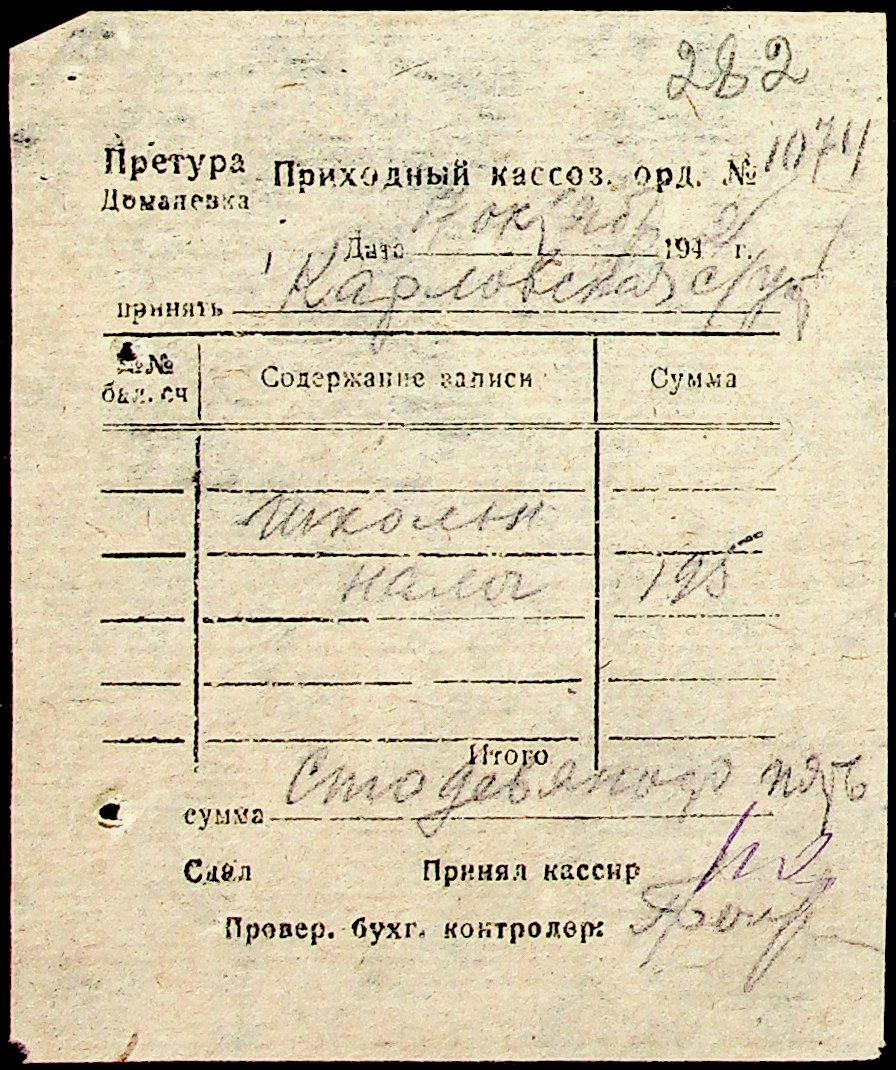 282
Претура Приходный кассов. орд. № 1074
Доманевка
Дата октябр 194 г.
принять Карловская
№№ бал. сч Содержание записи Сумма
школьн
налог 195
Итого
сумма Сто девяносто пять
Сдал Принял кассир
Провер. бухг. контролер: